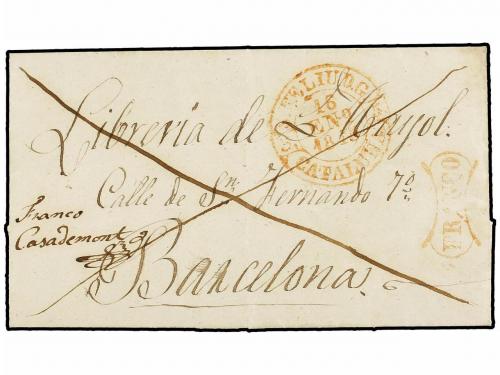 S. FELIU D. G.
16
ENº
CATALUÑA
Libreria de J. Mayol.
Calle de Sn. Fernando 7º
Franco
Casademont
Barcelona.
FRANCO